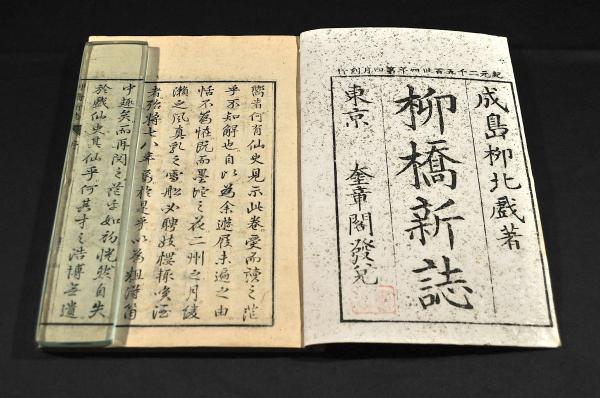 紀元二千五百卅四年第四月刻行
成島柳北戲著
柳橋新誌
東京 奎章閣發兌
嚮者何有仙史見示此卷受而讀之茫
乎不知解也自以為余遊屐未遍之由
恬不為怪既而墨陀之花二州之月綾
瀨之風真乳之雪船必聘妓樓輒喚酒
者殆將七八年焉於是乎以為粗得箇
中趣矣而再閱之茫乎如初恍然自失
於戲仙史其仙乎何其才之浩博無遺